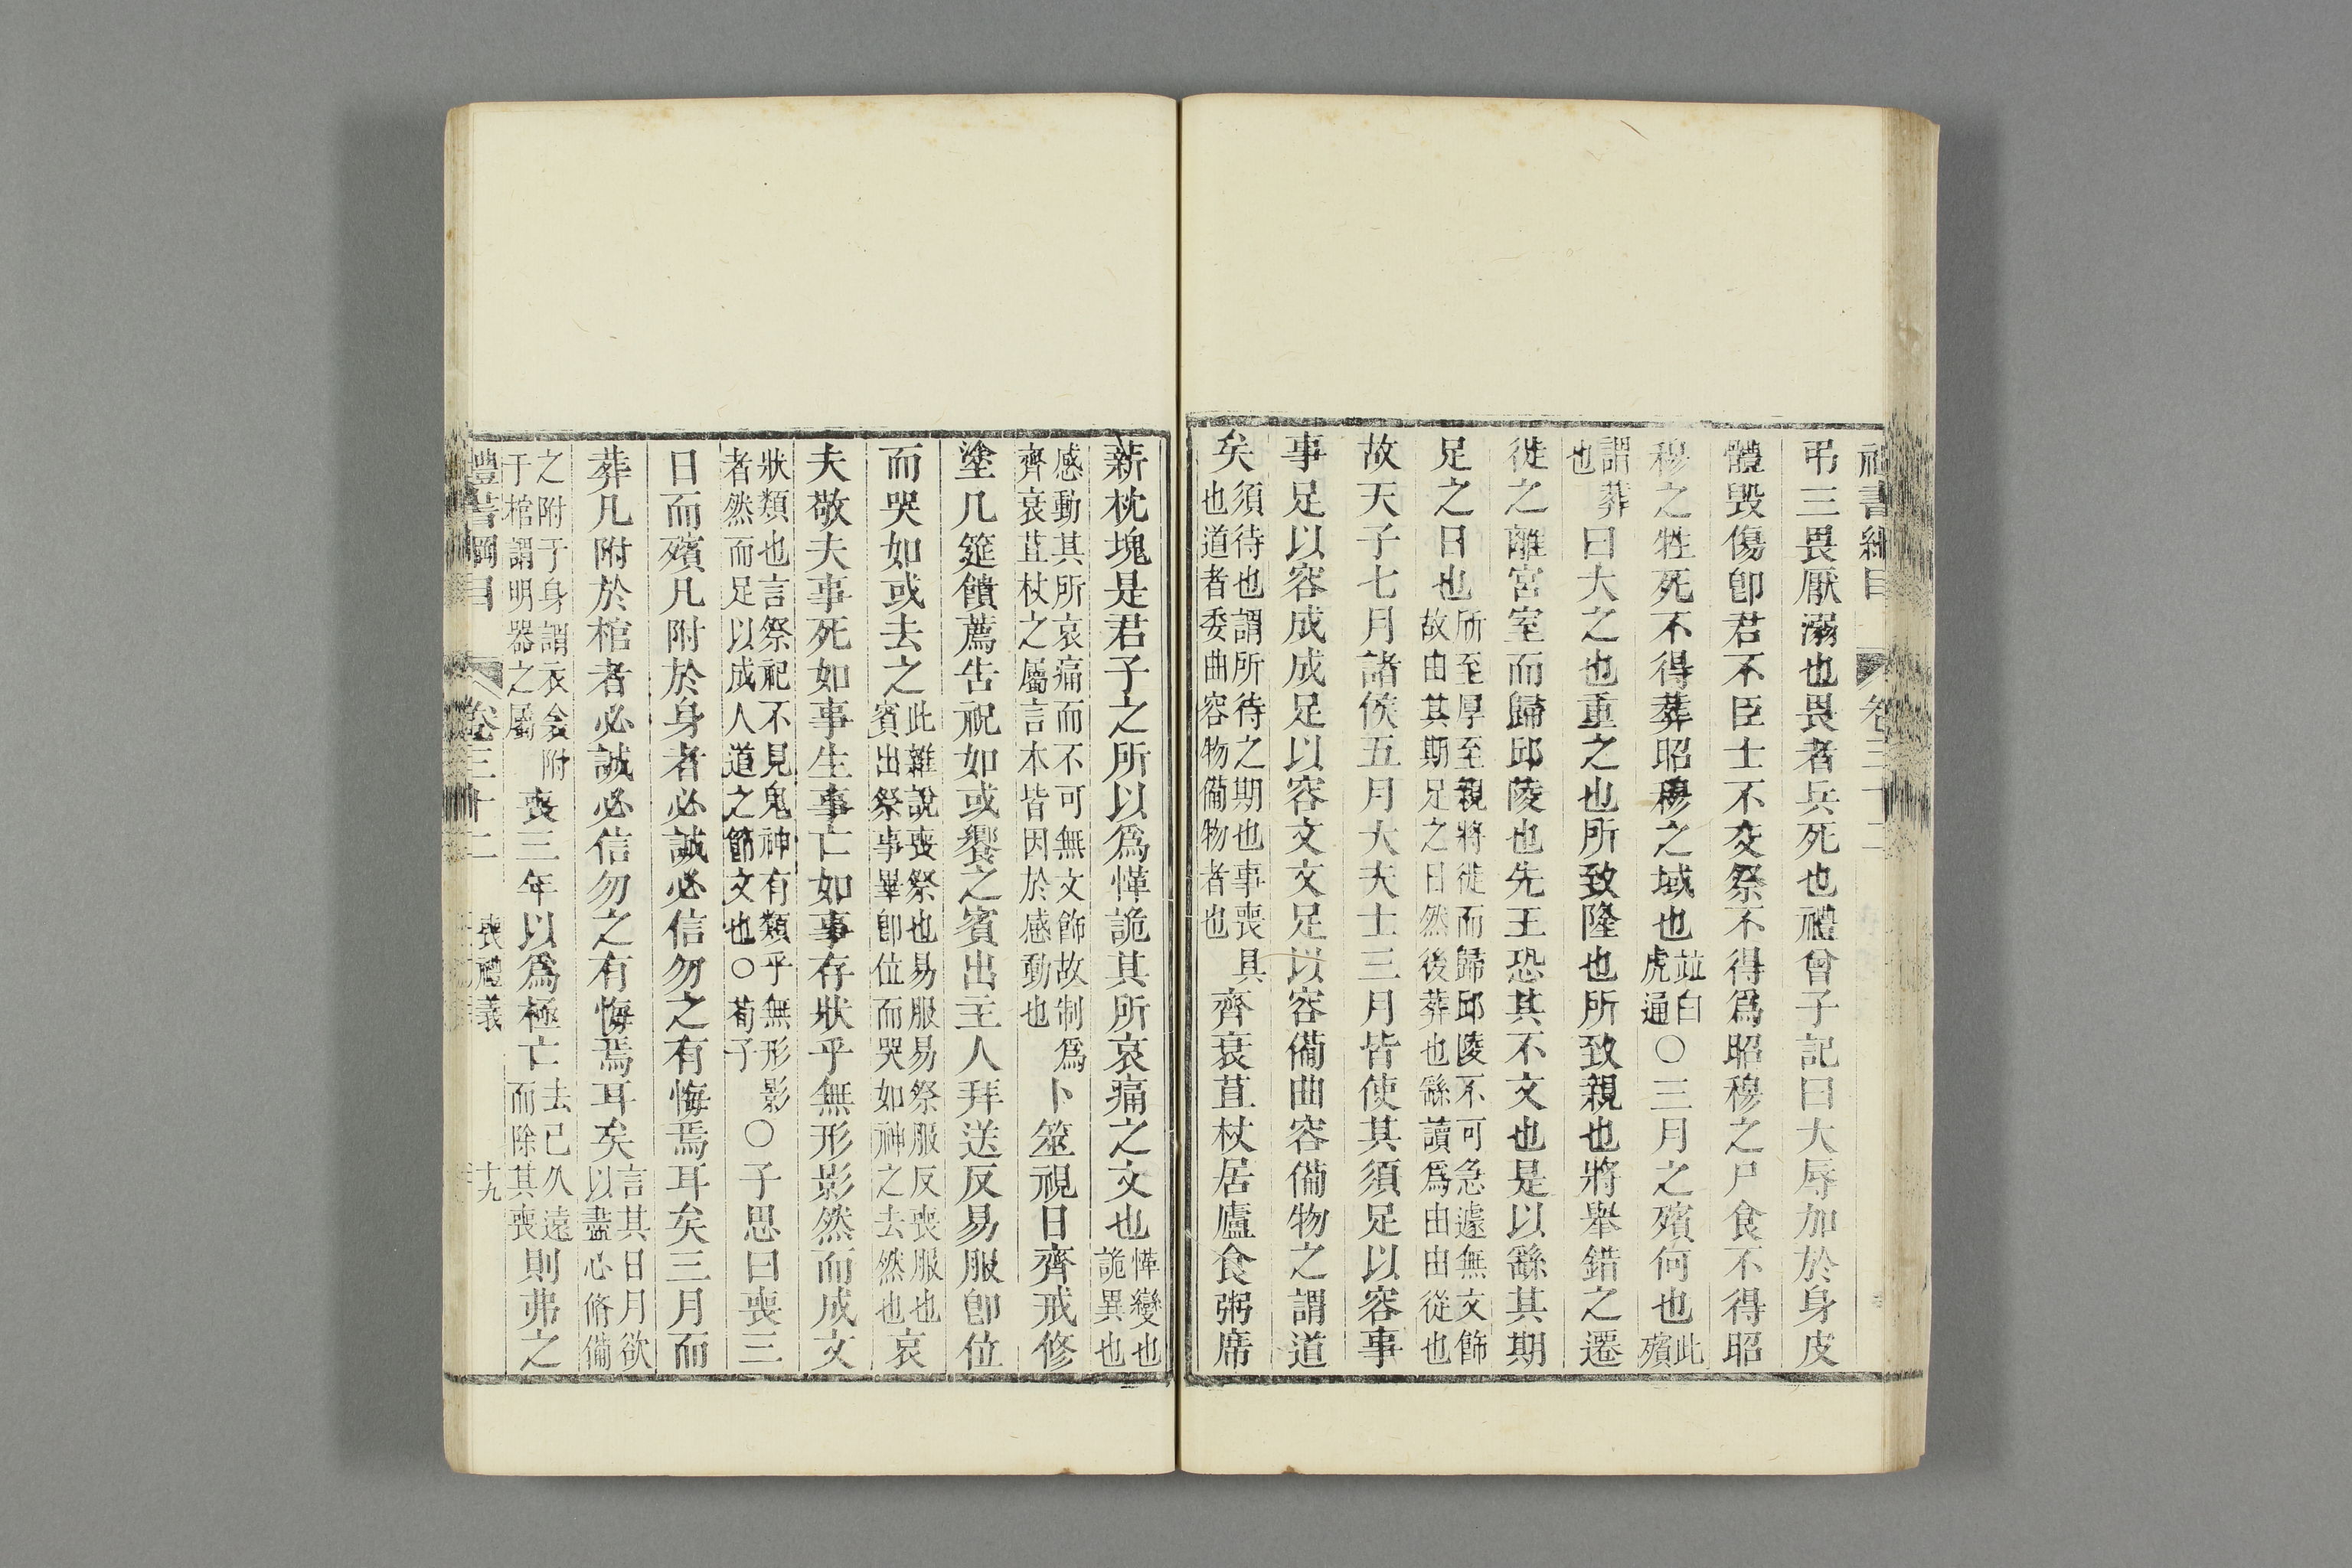 禮書綱目 卷三十二
弔三畏厭溺也畏者兵死也禮曾子記曰大辱加於身皮
體毁傷卽君不臣士不交祭不得爲昭穆之尸食不得昭
穆之牲死不得葬昭穆之域也並白虎通〇三月之殯何也此殯
謂葬也曰大之也重之也所致隆也所致親也將舉錯之遷
徙之離宮室而歸邱陵也先王恐其不文也是以繇其期
足之日也所至厚至親將徙而歸邱陵不可急遽無文飾故由其期足之日然後葬也繇讀爲由由從也
故天子七月諸侯五月大夫士三月皆使其須足以容事
事足以容成成足以容文文足以容備曲容備物之謂道
矣須待也謂所待之期也事喪具也道者委曲容物備物者也齊衰苴杖居廬食粥席
薪枕塊是君子之所以爲愅詭其所哀痛之文也愅變也詭異也
感動其所哀痛而不可無文飾故制爲齊衰苴杖之屬言本皆因於感動也卜筮視日齊戒修
塗几筵饋薦告祝如或饗之賓出主人拜送反易服卽位
而哭如或去之此雜說喪祭也易服易祭服反喪服也賓出祭事畢卽位而哭如神之去然也哀
夫敬夫事死如事生事亡如事存狀乎無形影然而成文
狀類也言祭祀不見鬼神有類乎無形影者然而足以成人道之節文也〇荀子〇子思曰喪三
日而殯凡附於身者必誠必信勿之有悔焉耳矣三月而
葬凡附於棺者必誠必信勿之有悔焉耳矣言其日月欲以盡心脩備
之附于身謂衣衾附于棺謂明器之屬喪三年以爲極亡去已久遠而除其喪則弗之
禮書綱目 卷三十二 喪禮義 十九